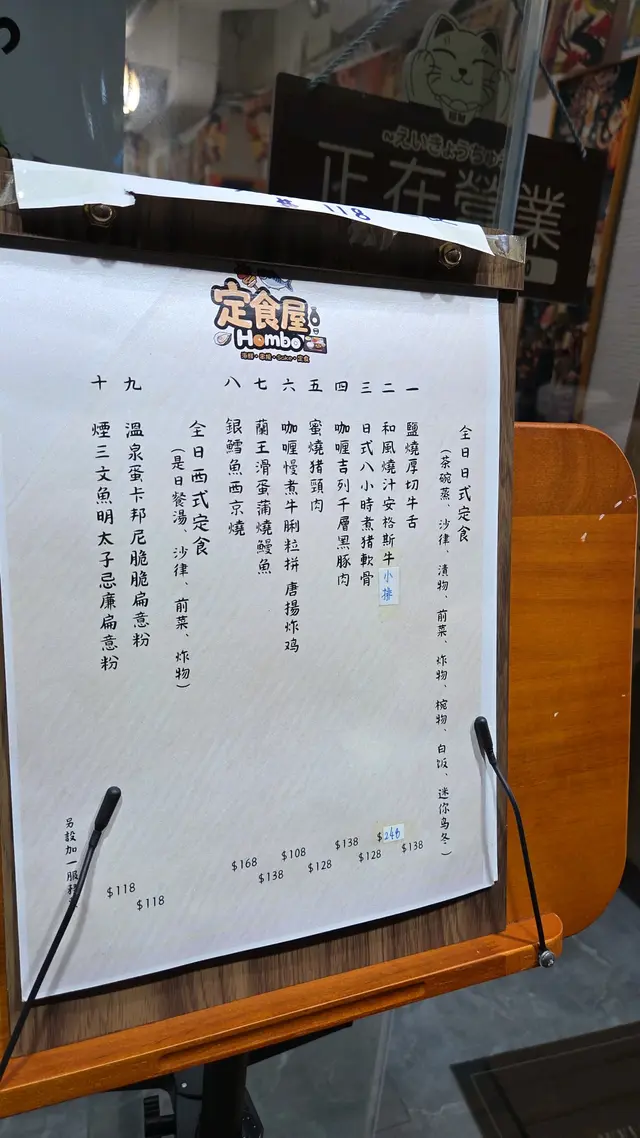 ~えいぎょうちゅう~
正在營業
118
定食屋
Hombo
海鮮・串燒・Sake・定食
全日日式定食
(茶碗蒸、沙律、漬物、前菜、炸物、椀物、白饭、迷你乌冬。)
一 鹽燒厚切牛舌 $138
二 和風燒汁安格斯牛小排 $248
三 日式八小時煮猪軟骨 $128
四 咖喱吉列千層黑豚肉 $138
五 蜜燒猪頸肉 $128
六 咖喱慢煮牛脷粒拼 唐揚炸鸡 $108
七 蘭王滑蛋蒲燒鰻魚 $138
八 銀鱈魚西京燒 $168
全日西式定食
(是日餐湯、沙律、前菜、炸物)
九 溫泉蛋卡邦尼脆脆扁意粉 $118
十 煙三文魚明太子忌廉扁意粉 $118
另設加一服務